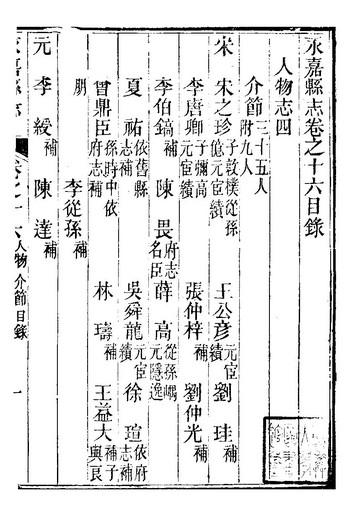 永嘉縣志卷之十六目錄
人物志四
介節三十五人附九人
宋 宋之珍子敦樸從孫億元宦績 王公彥元宦績 劉珪補
李唐卿子彌高元宦績 張仲梓補 劉仲光補
李伯鎬補 陳畏府志名臣 薛高從孫嵎元隱逸
夏祐依舊縣志補 吳舜龍元宦績 徐瑄依府志補
曾鼎臣孫時中依府志補 林璹補 王益大補子與艮
鵬 李從孫補
元 李綬補 陳達補
永嘉縣志 卷之十六 人物 介節目錄 一